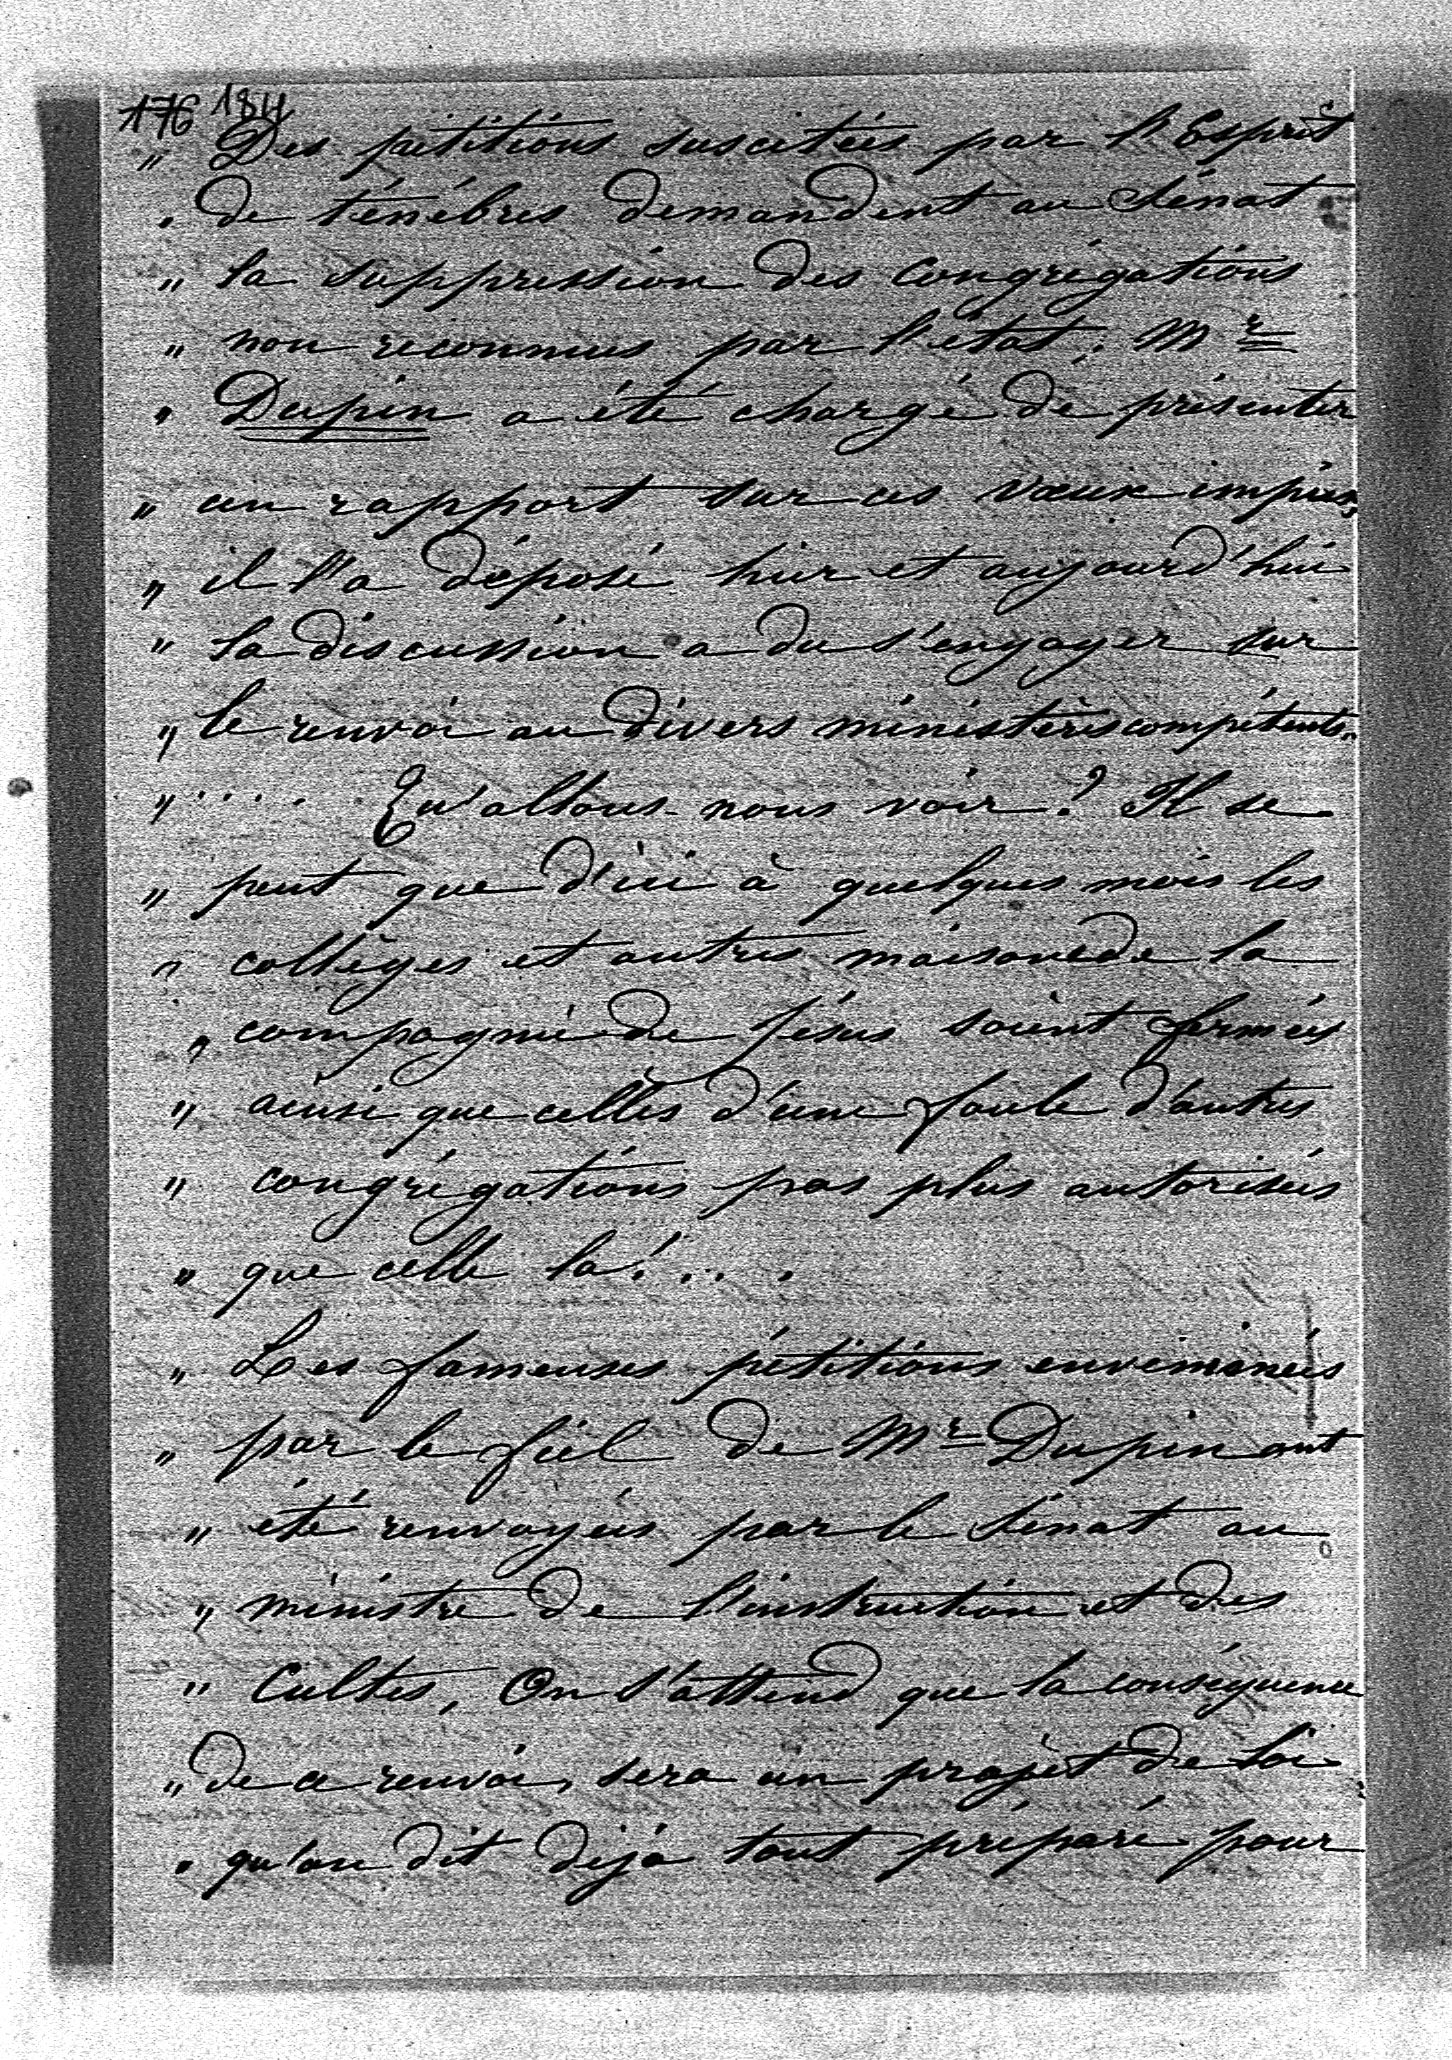 176 184
" Des pétitions suscitées par l'Esprit
" de ténébres demandent au Sénat
" la suppression des congrégations
" non reconnues par l'état; Mr
" Dupin a été chargé de présenter
" un rapport sur ces vœux impies;
" il l'a déposé hier et aujourd'hui
" la discussion a du s'engager sur
" le renvoi au divers ministères compétents.
" .... Qu'allons-nous voir? Il se
" peut que d'ici à quelques mois les
" collèges et autres maisons de la
" compagnie de Jésus soient fermées
" ainsi que celles d'une foule d'autres
" congrégations pas plus autorisées
" que celle là! ...
" Les fameuses pétitions envenimées
" par le fiel de Mr Dupin ont
" été renvoyées par le Sénat au
" ministre de l'instruction et des
" Cultes, On s'attend que la conséquence
" de ce renvoi, sera un projet de loi
" qu'on dit déjà tout préparé pour